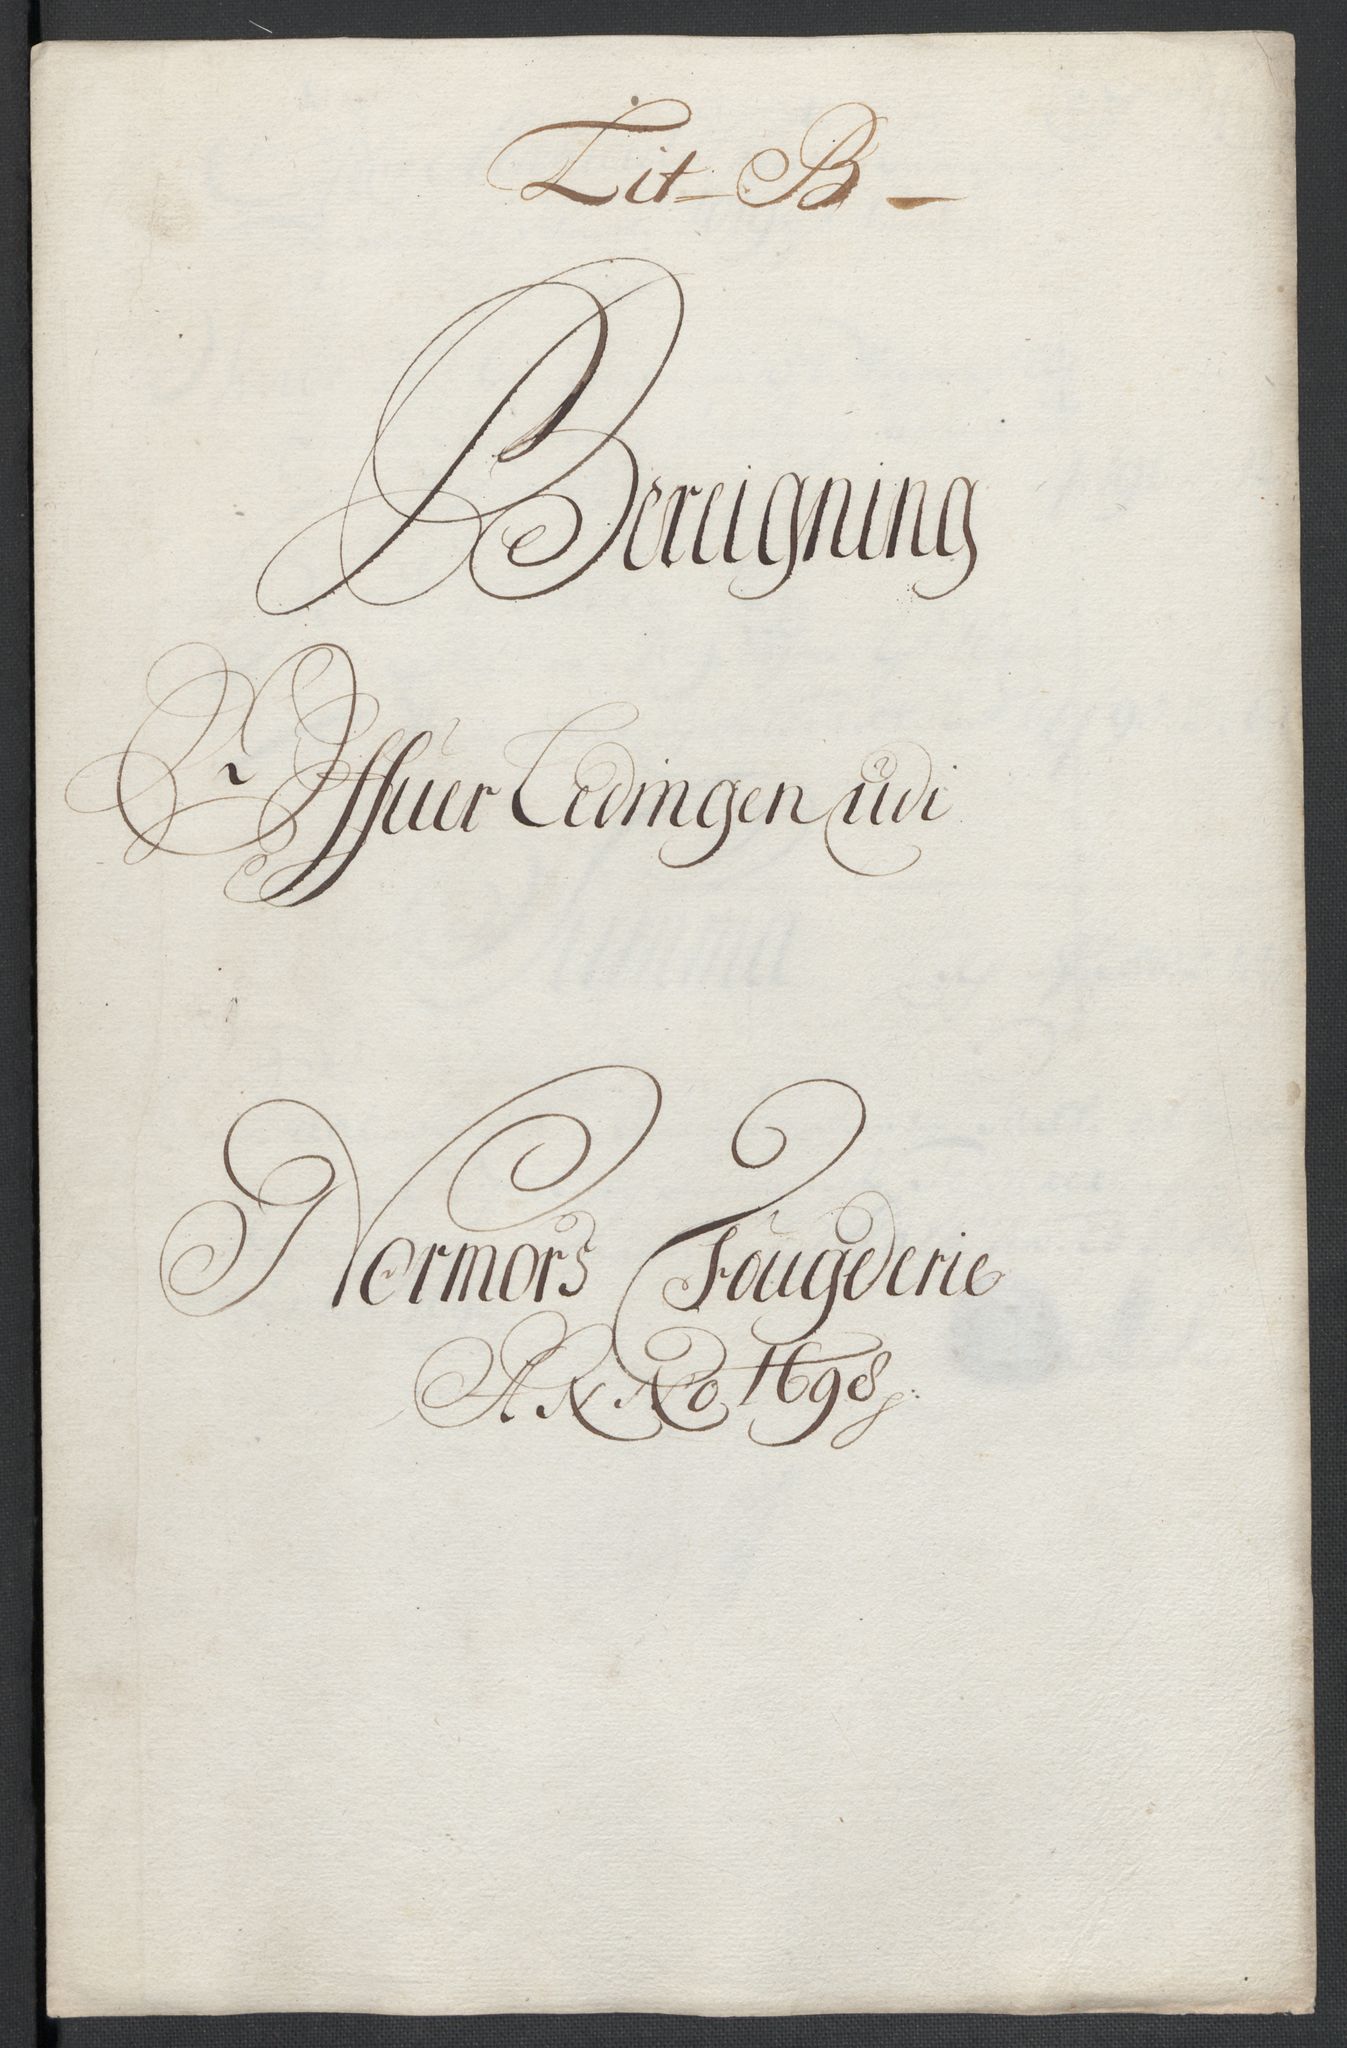 Lit B
Bereigning
Offuer Ledingen udi
Normørs Fougderie
ANNO 1698